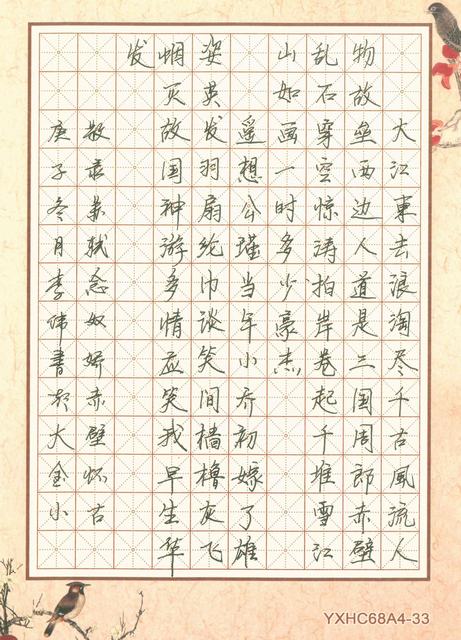 大江東去浪淘尽千古風流人
物故垒西边人道是三国周郎赤壁
乱石穿空惊涛拍岸卷起千堆雪江
山如画一时多少豪杰
遥想公瑾当年小乔初嫁了雄
姿英发羽扇纶巾谈笑间樯橹灰飞
烟灭故国神游多情应笑我早生华
发
敬录苏轼念奴娇赤壁怀古
庚子冬月李伟書於大金小
YXHC68A4-33